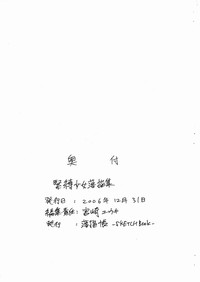 奥付
緊縛少女落描集
発行日：2006年12月31日
編集責任：宮崎
発行：落描帳 -SKETCH Book-